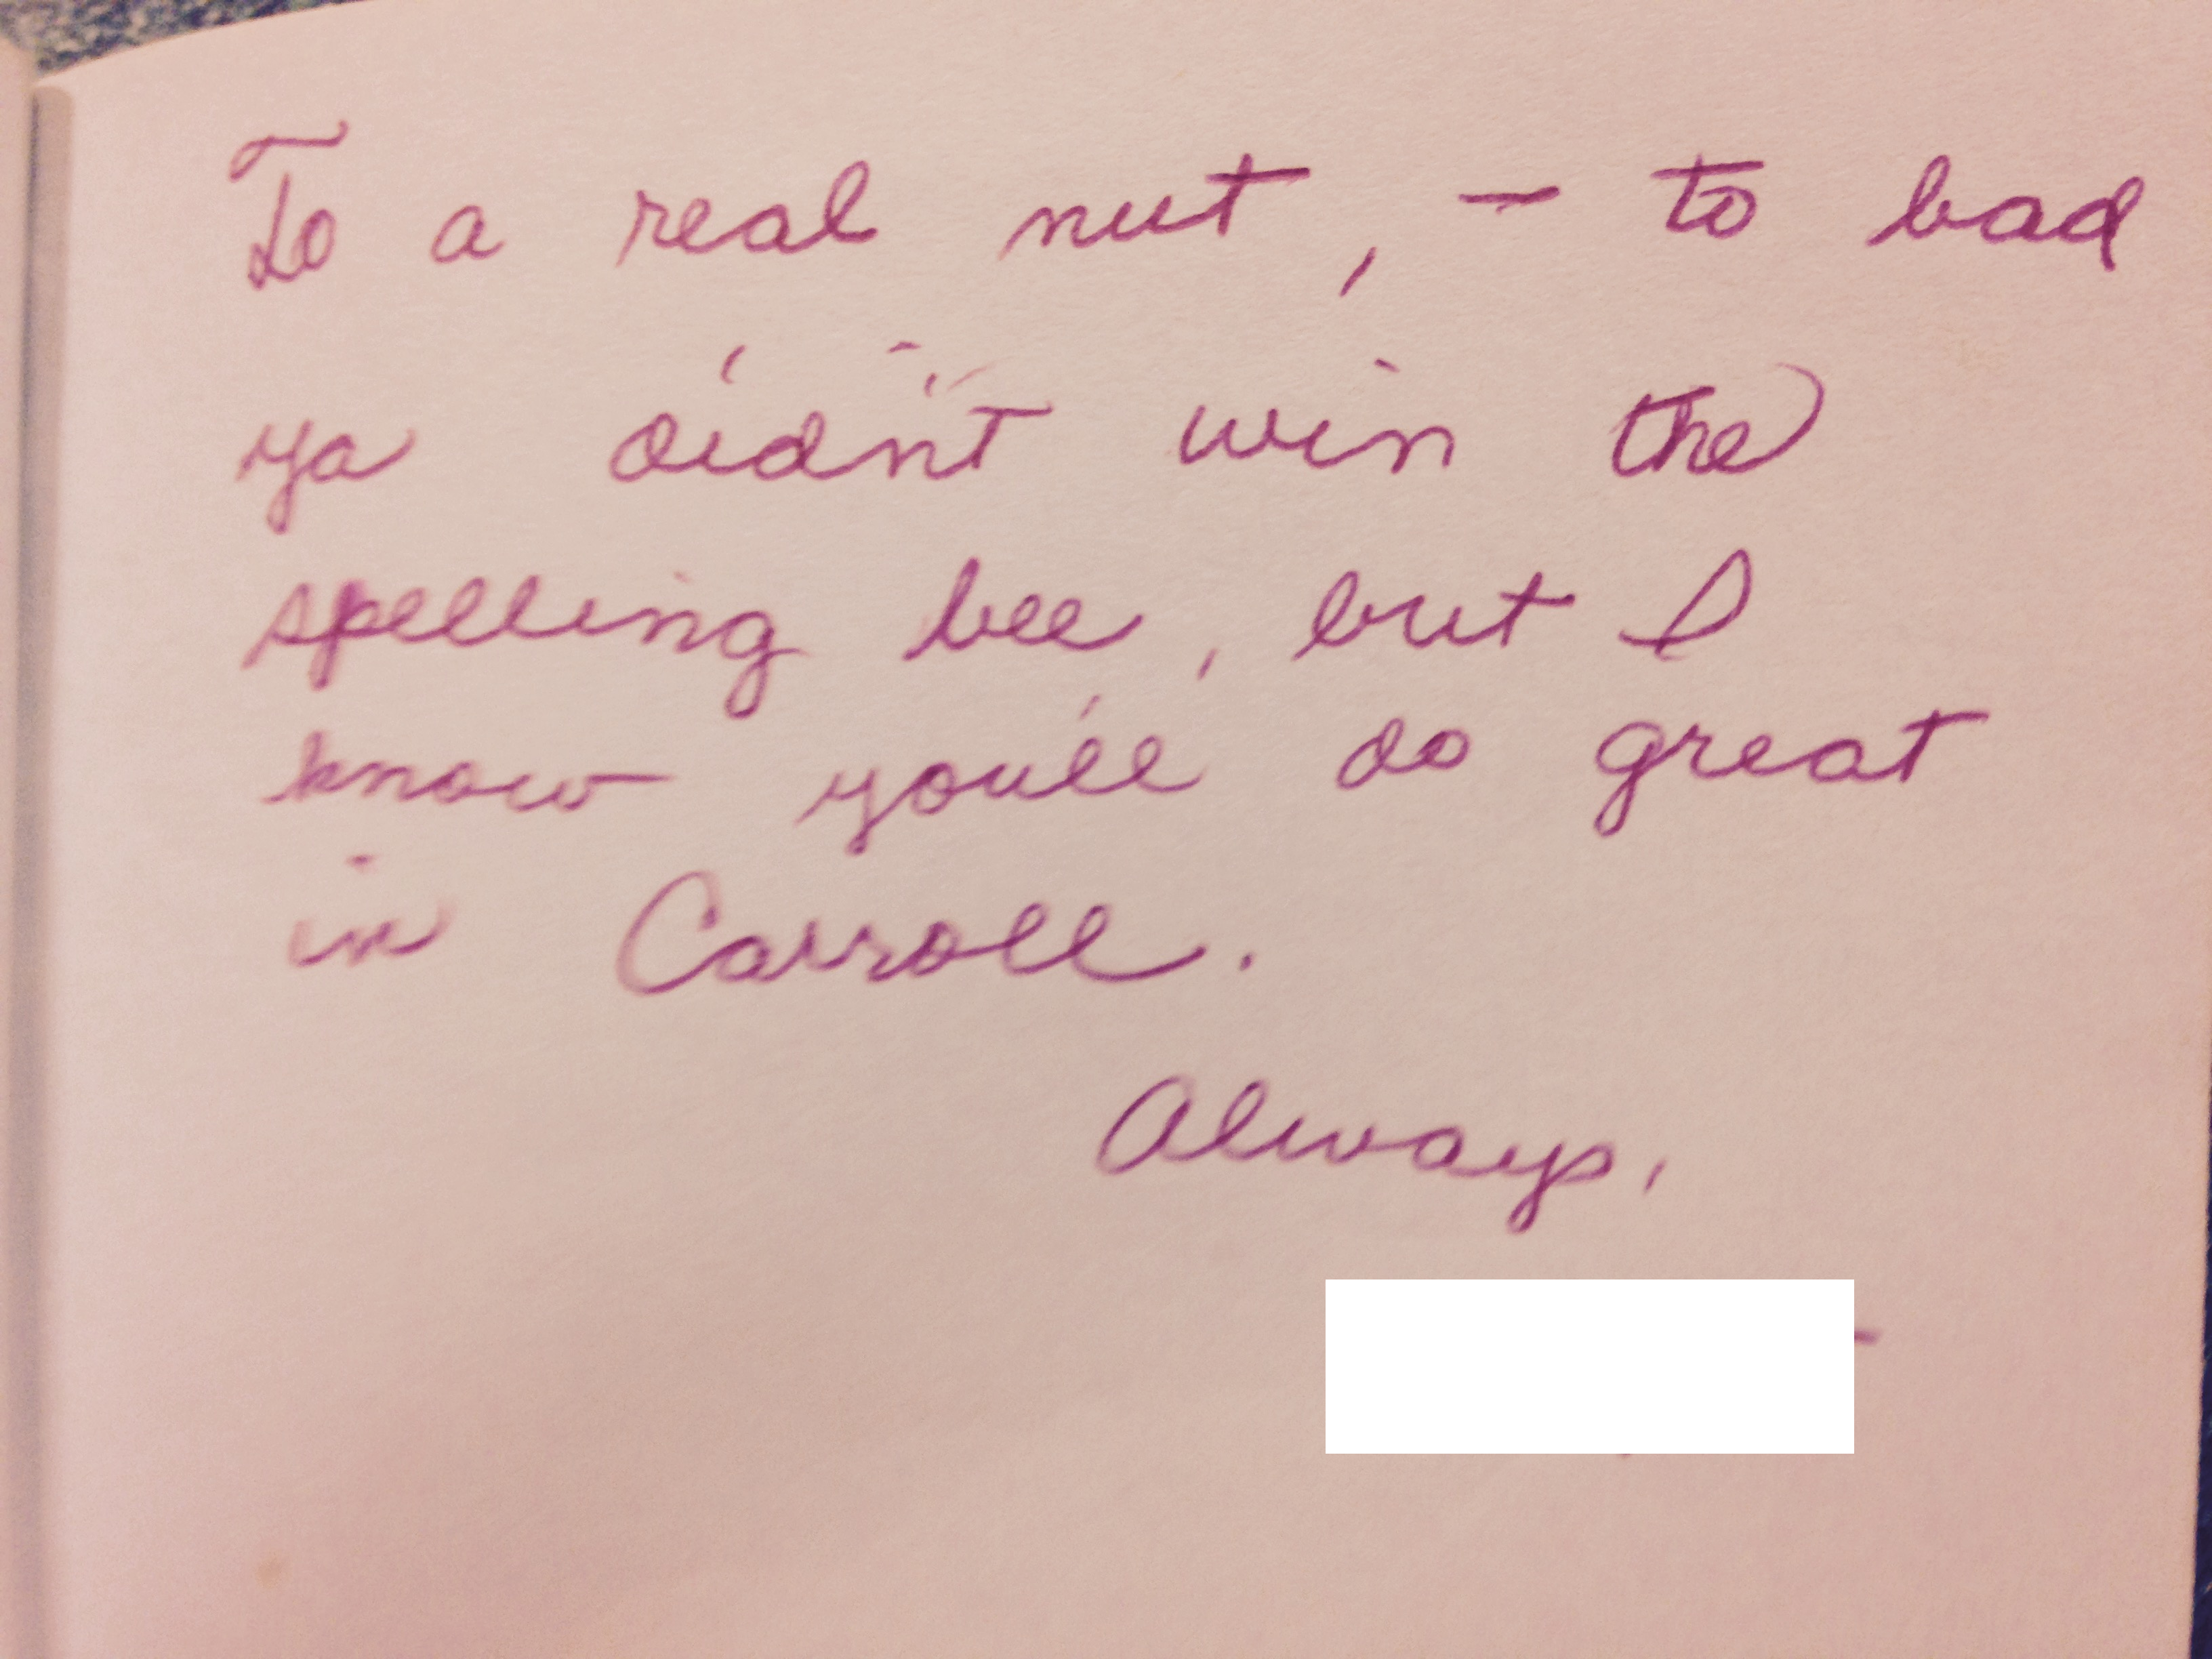 To a real nut, - to bad
ya didn't win the
spelling bee, but I
know you'll do great
in Carroll.
Always,